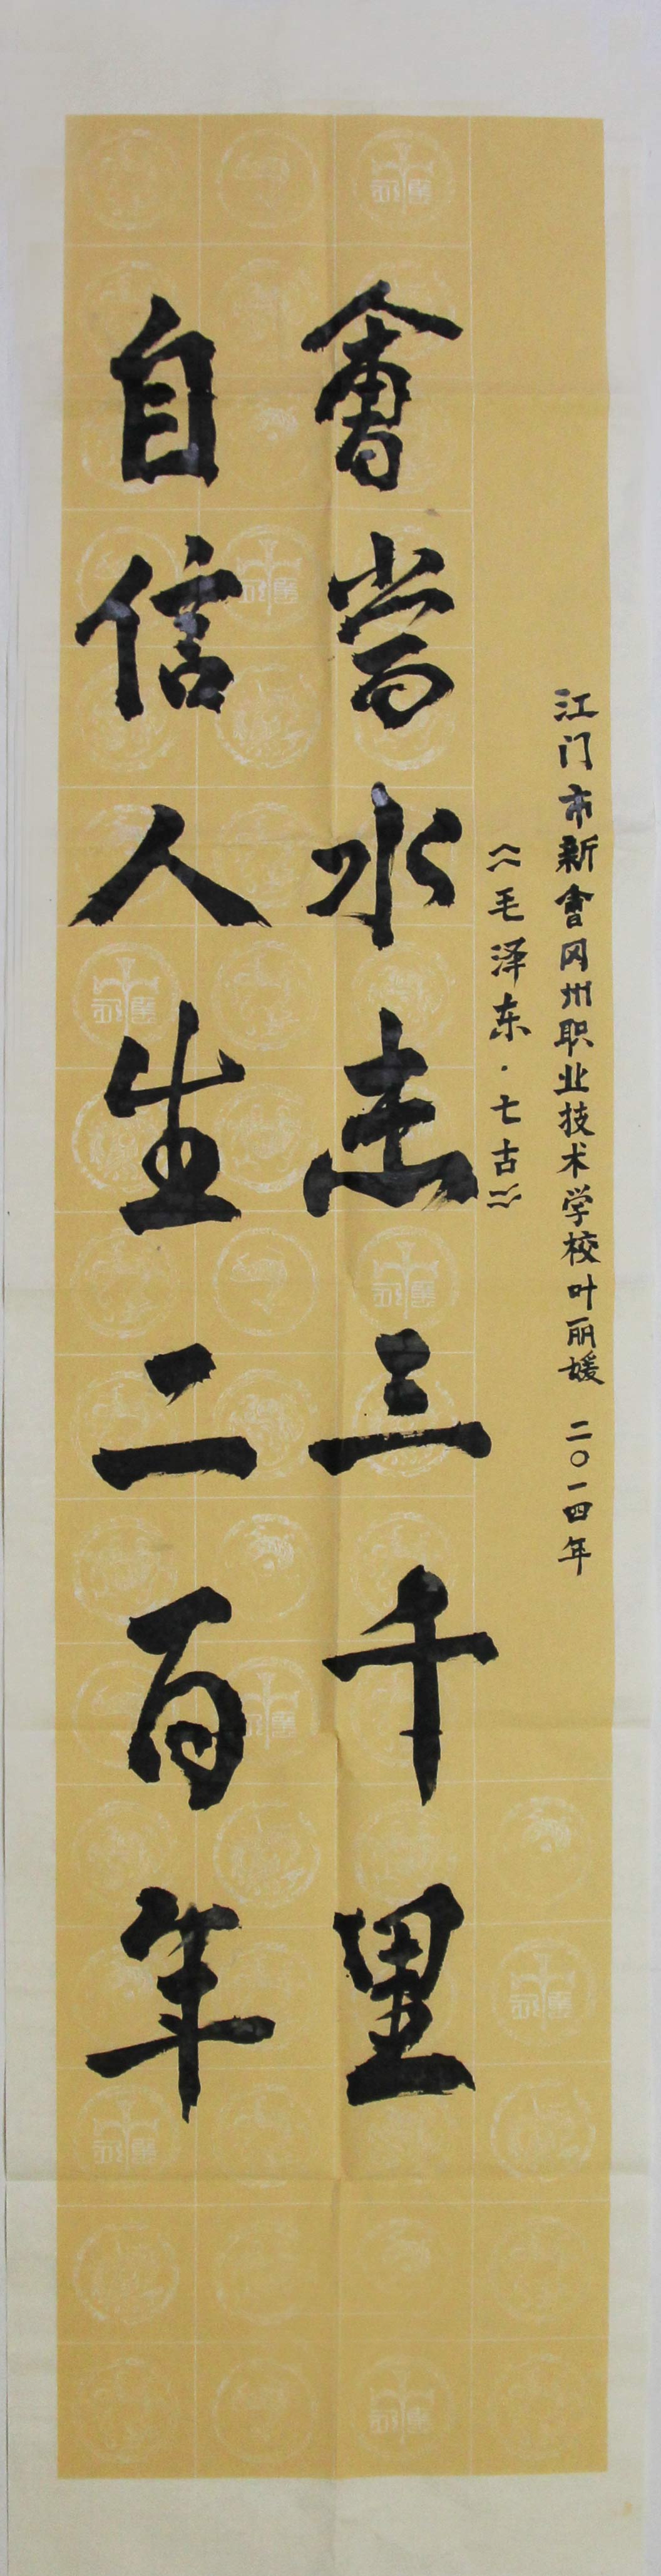 自信人生二百年
會當水击三千里
《毛泽东·七古》
江门市新會冈州职业技术学校叶丽媛 二〇一四年